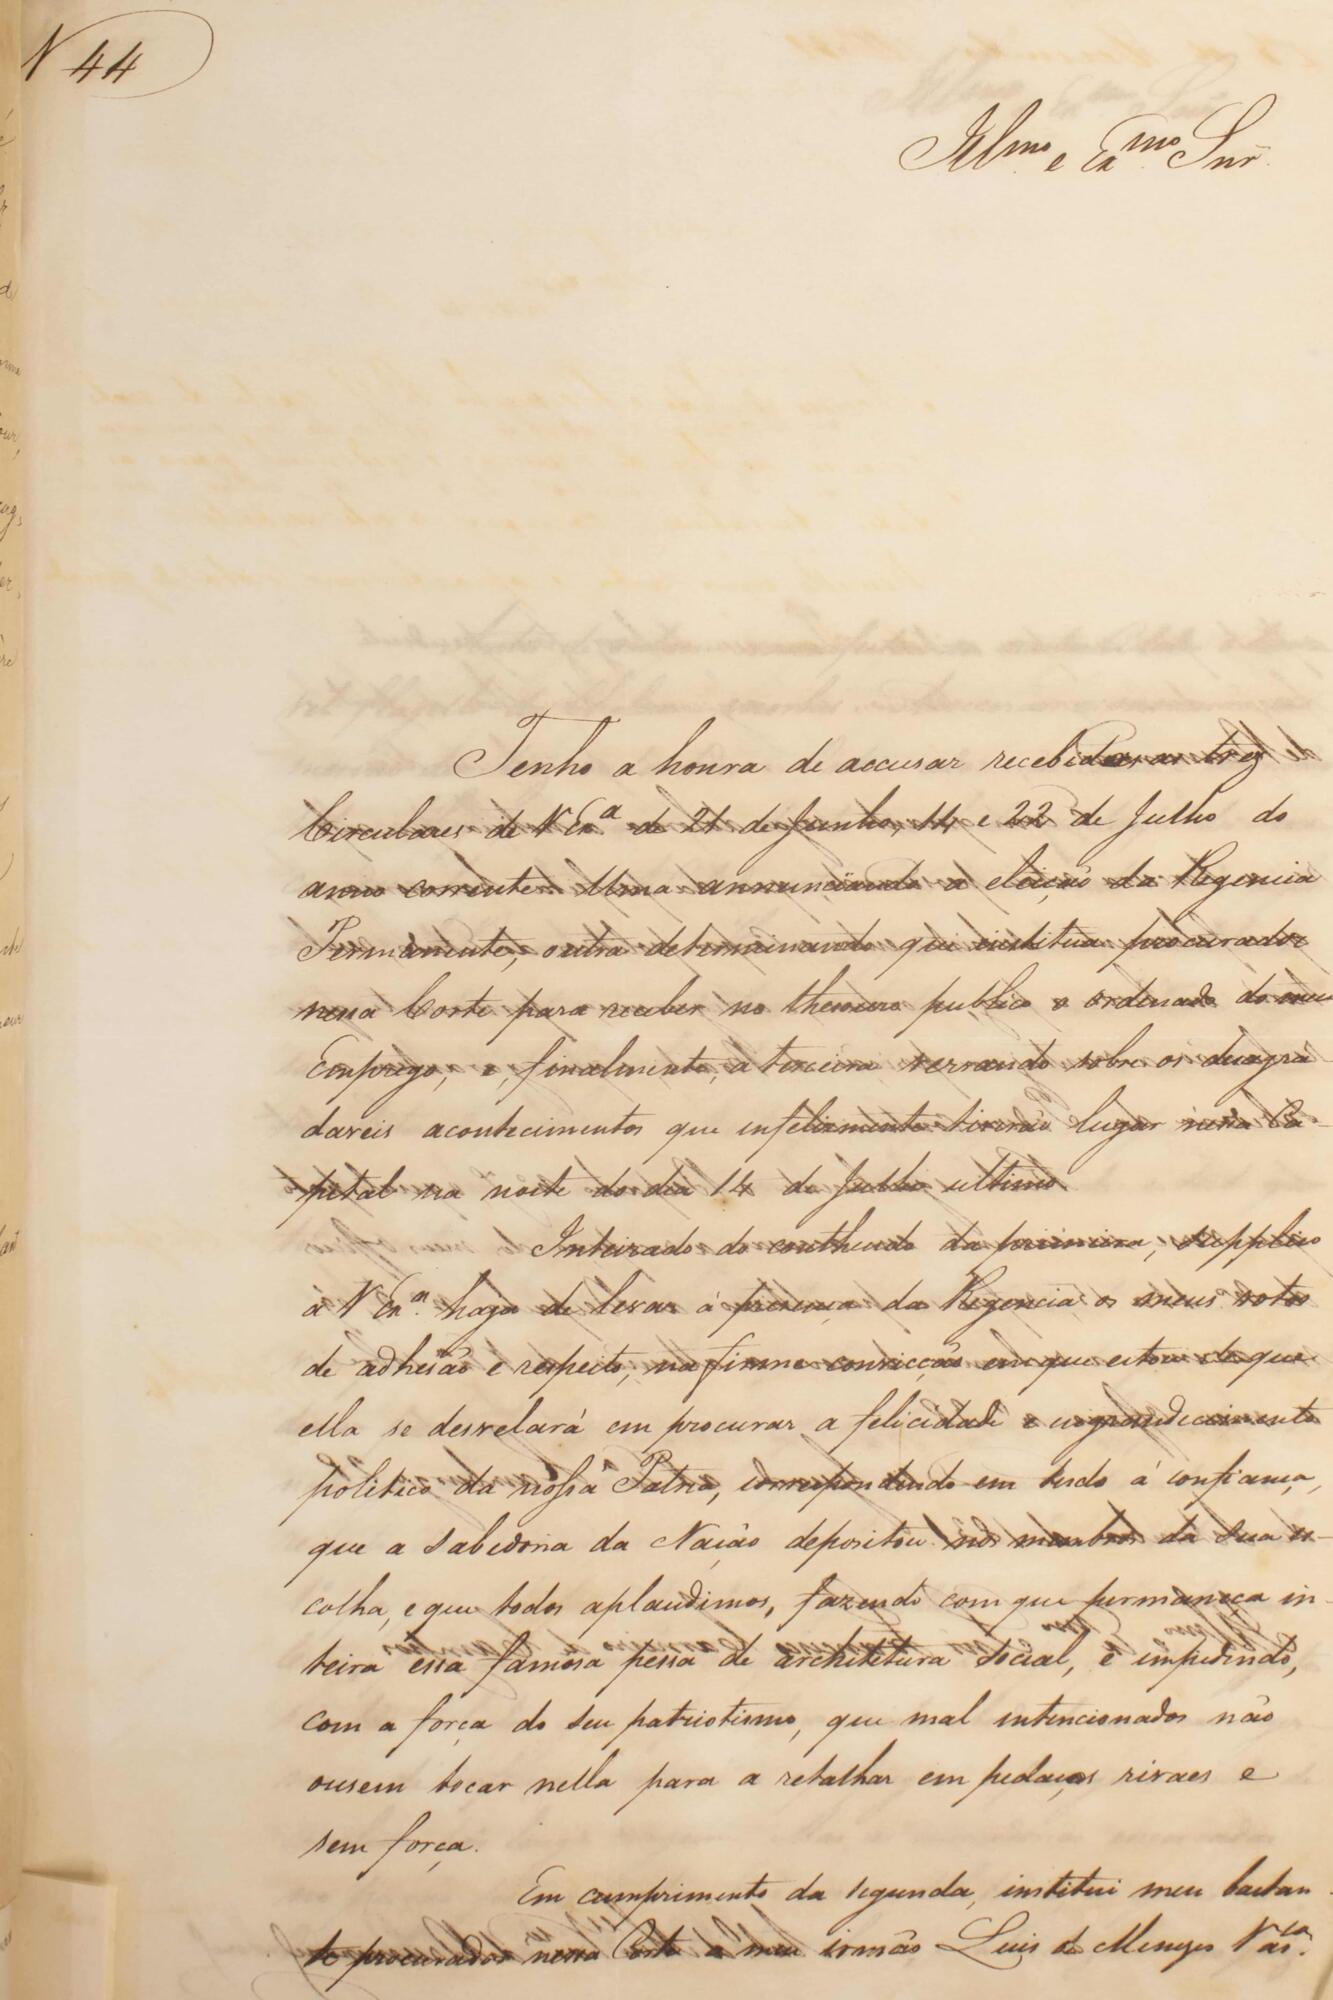 N 44
Illmo e Exmo Snr.
Tenho a honra de accusar recebidas as trez
Circulares de V Exa de 21 de Junho, 14 e 22 de Julho do
anno corrente. Uma annunciando a eleição da Regencia
Permanente, outra determinando que institua procurador
nessa Corte para receber no thesouro publico o ordenado do meu
Emprego, e, finalmente, a terceira versando sobre os desagra-
daveis acontecimentos que infelizmente tiverão lugar nessa Ca-
pital na noite do dia 14 de Julho ultimo.
Inteirado do conthendo da primeira, supplico
a V Exa. haja de levar á presença da Regencia os meus votos
de adhesão e respeito, na firme convicção em que estou de que
ella se desvelará em procurar a felicidade e engrandecimento
politico da nossa Patria, correspondendo em tudo á confiança,
que a sabedoria da Nação depositou nos membros da sua es-
colha, e que todos aplaudimos, fazendo com que permaneça in-
teira essa famosa pessa de architetura social, e impedindo,
com a força do seu patriotismo, que mal intencionados não
ousem tocar nella para a retalhar em pedaços rivaes e
sem força.
Em cumprimento da segunda, institui meu bastan-
te procurador nessa Corte a meu irmão Luis de Menezes Vas.los